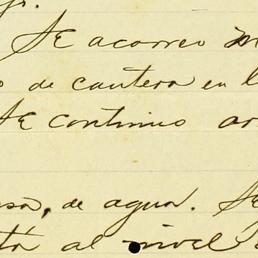 Se acarreo
de cantera en l
Se continuo
de agua. Se
al nivel